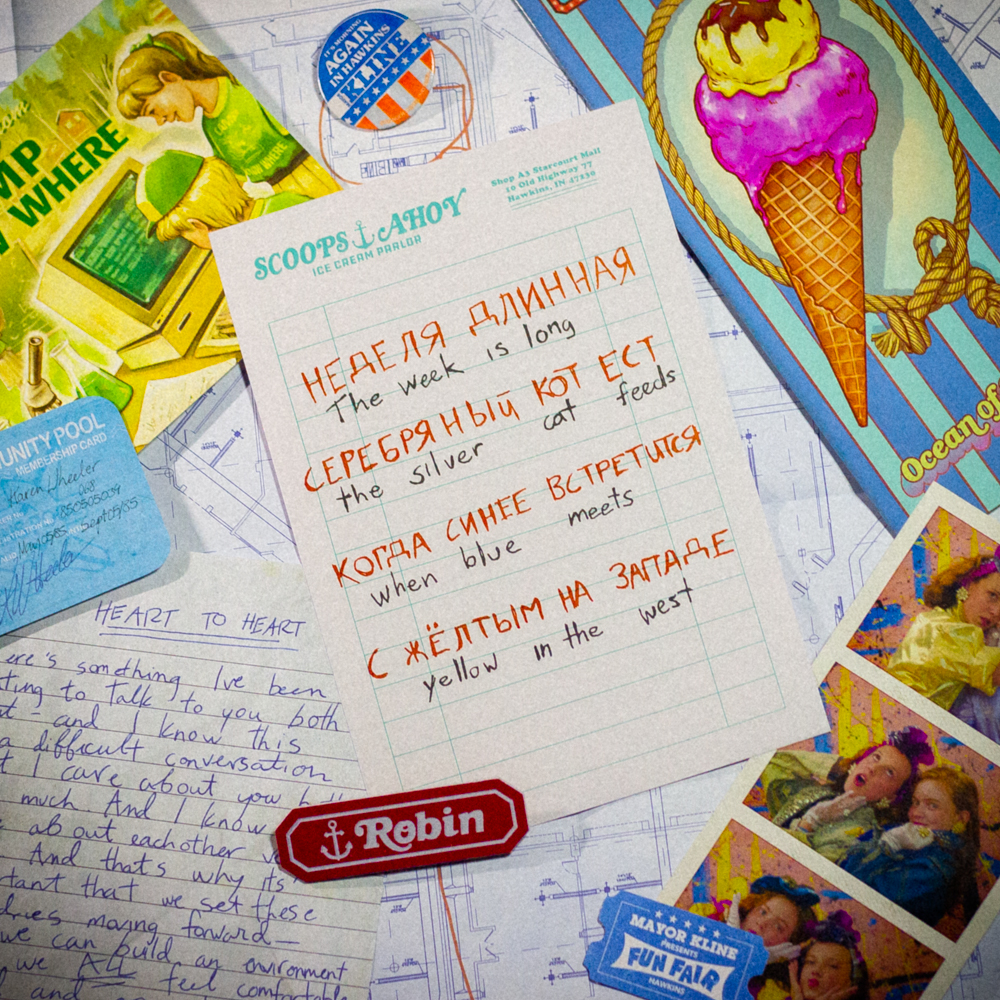 IT'S MORNING
AGAIN
IN HAWKINS
KLINE
MP
WHERE
SCOOPS AHOY
ICE CREAM PARLOR
Shop A3 Starcourt Mall
10 Old Highway 77
Hawkins, IN 47230
НЕДЕЛЯ ДЛИННАЯ
The week is long
СЕРЕБРЯНЫЙ КОТ ЕСТ
the silver cat feeds
КОГДА СИНЕЕ ВСТРЕТИТСЯ
when blue meets
С ЖЁЛТЫМ НА ЗАПАДЕ
yellow in the west
Ocean of
UNITY POOL
MEMBERSHIP CARD
Karen Wheeler
HEART TO HEART
ere's something I've been
ting to talk to you both
t - and I know this
a difficult conversation
t I care about you
much. And I know
about eachother
And that's why its
tant that we set these
dries moving forward—
we can build an environment
we ALL feel comfortable
and
Robin
MAYOR KLINE
PRESENTS
FUN FAIR
HAWKINS